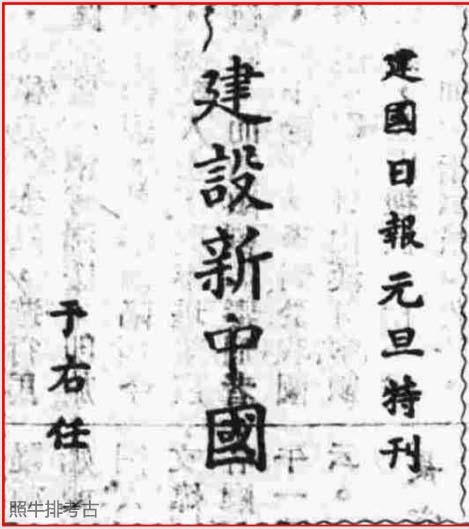 建國日報元旦特刊
建設新中國
于右任
照牛排考古